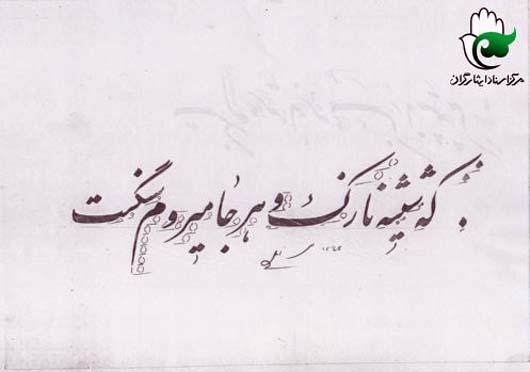 مرکز اسناد ایثارگران
که شیشه نازک و هر جا میروم سنگست